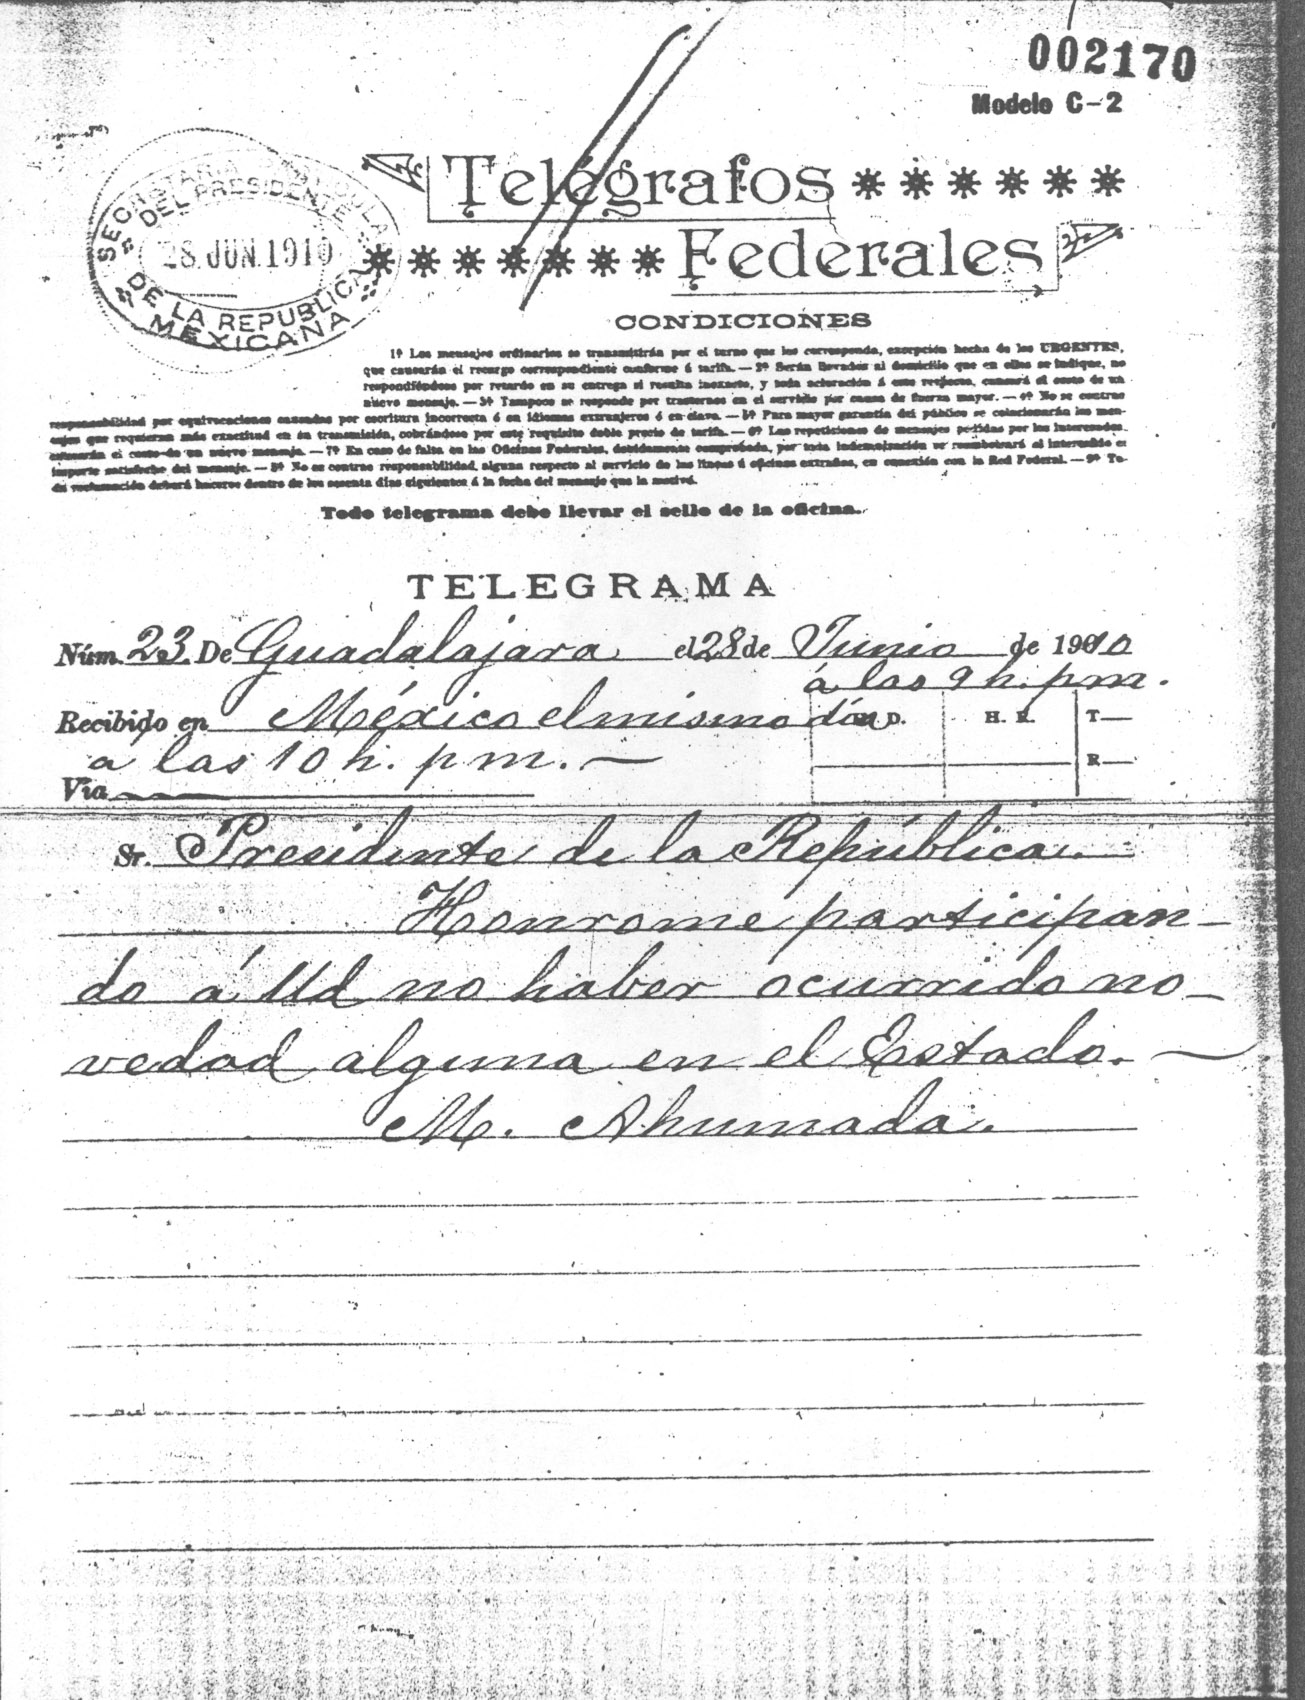 002170
Modelo C-2
SECRETARIA PARTICULAR
DEL PRESIDENTE
28 JUN. 1910
DE LA REPUBLICA
MEXICANA
Telégrafos
Federales
CONDICIONES
1ª Los mensajes ordinarios se transmitirán por el turno que les corresponda, excepción hecha de los URGENTES,
que causarán el recargo correspondiente conforme á tarifa. — 2ª Serán llevados al domicilio que en ellos se indique, no
respondiéndose por retardo en su entrega si resulta inexacto, y toda aclaración á este respecto, causará el costo de un
nuevo mensaje. — 3ª Tampoco se responde por trastornos en el servicio por causa de fuerza mayor. — 4ª No se contrae
responsabilidad por equivocaciones causadas por escritura incorrecta ó en idiomas extranjeros ó en clave. — 5ª Para mayor garantía del público se colacionarán los men-
sajes que requieran más exactitud en su transmisión, cobrándose por este requisito doble precio de tarifa. — 6ª Las repeticiones de mensajes pedidas por los interesados,
causarán el costo de un nuevo mensaje. — 7ª En caso de falta en las Oficinas Federales, debidamente comprobada, por toda indemnización se reembolsará al interesado el
importe satisfecho del mensaje. — 8ª No se contrae responsabilidad alguna respecto al servicio de las líneas ú oficinas extrañas, en conexión con la Red Federal. — 9ª To-
da reclamación deberá hacerse dentro de los sesenta días siguientes á la fecha del mensaje que la motivó.
Todo telegrama debe llevar el sello de la oficina.
TELEGRAMA
Núm. 23. De Guadalajara el 28 de Junio de 1910
á las 9 h. pm.
Recibido en México el mismo día D. H. R. T
a las 10 h. pm. — R
Vía
Sr. Presidente de la República.
Honrome participan-
do á Ud no haber ocurrido no-
vedad alguna en el Estado. —
M. Ahumada.